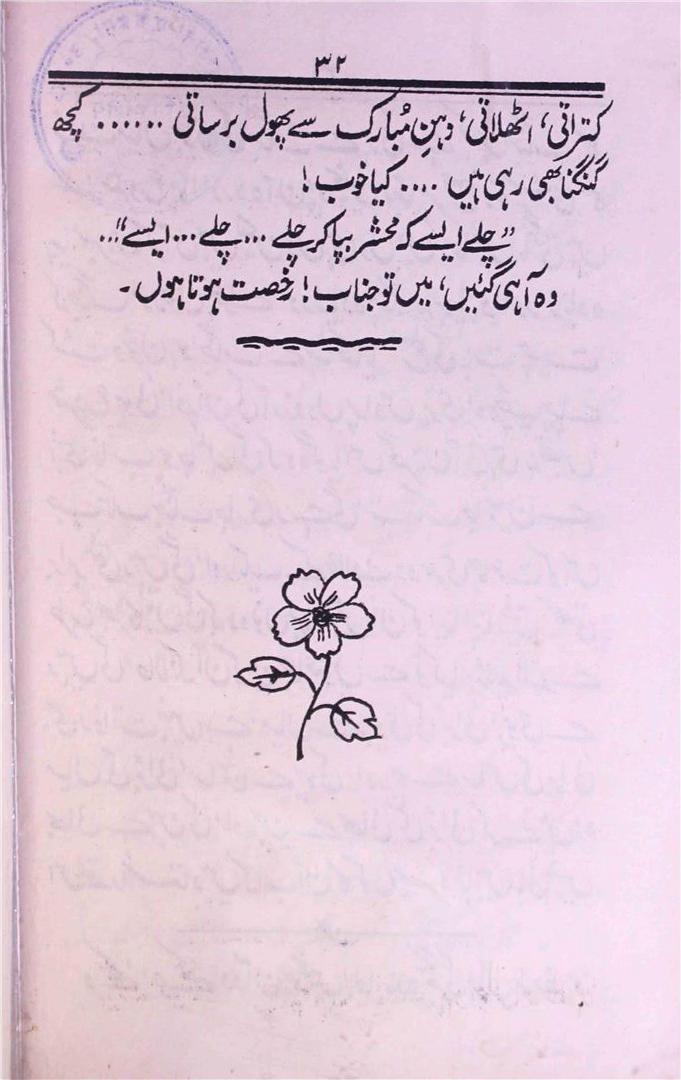 ۳۲
کتراتی، اٹھلاتی، دہنِ مُبارک سے پھول برساتی ...... کچھ
گنگنا بھی رہی ہیں .... کیا خوب !
”چلے ایسے کہ محشر بپا کر چلے ... چلے ... ایسے“...
وہ آہی گئیں، میں تو جناب ! رخصت ہوتا ہوں۔